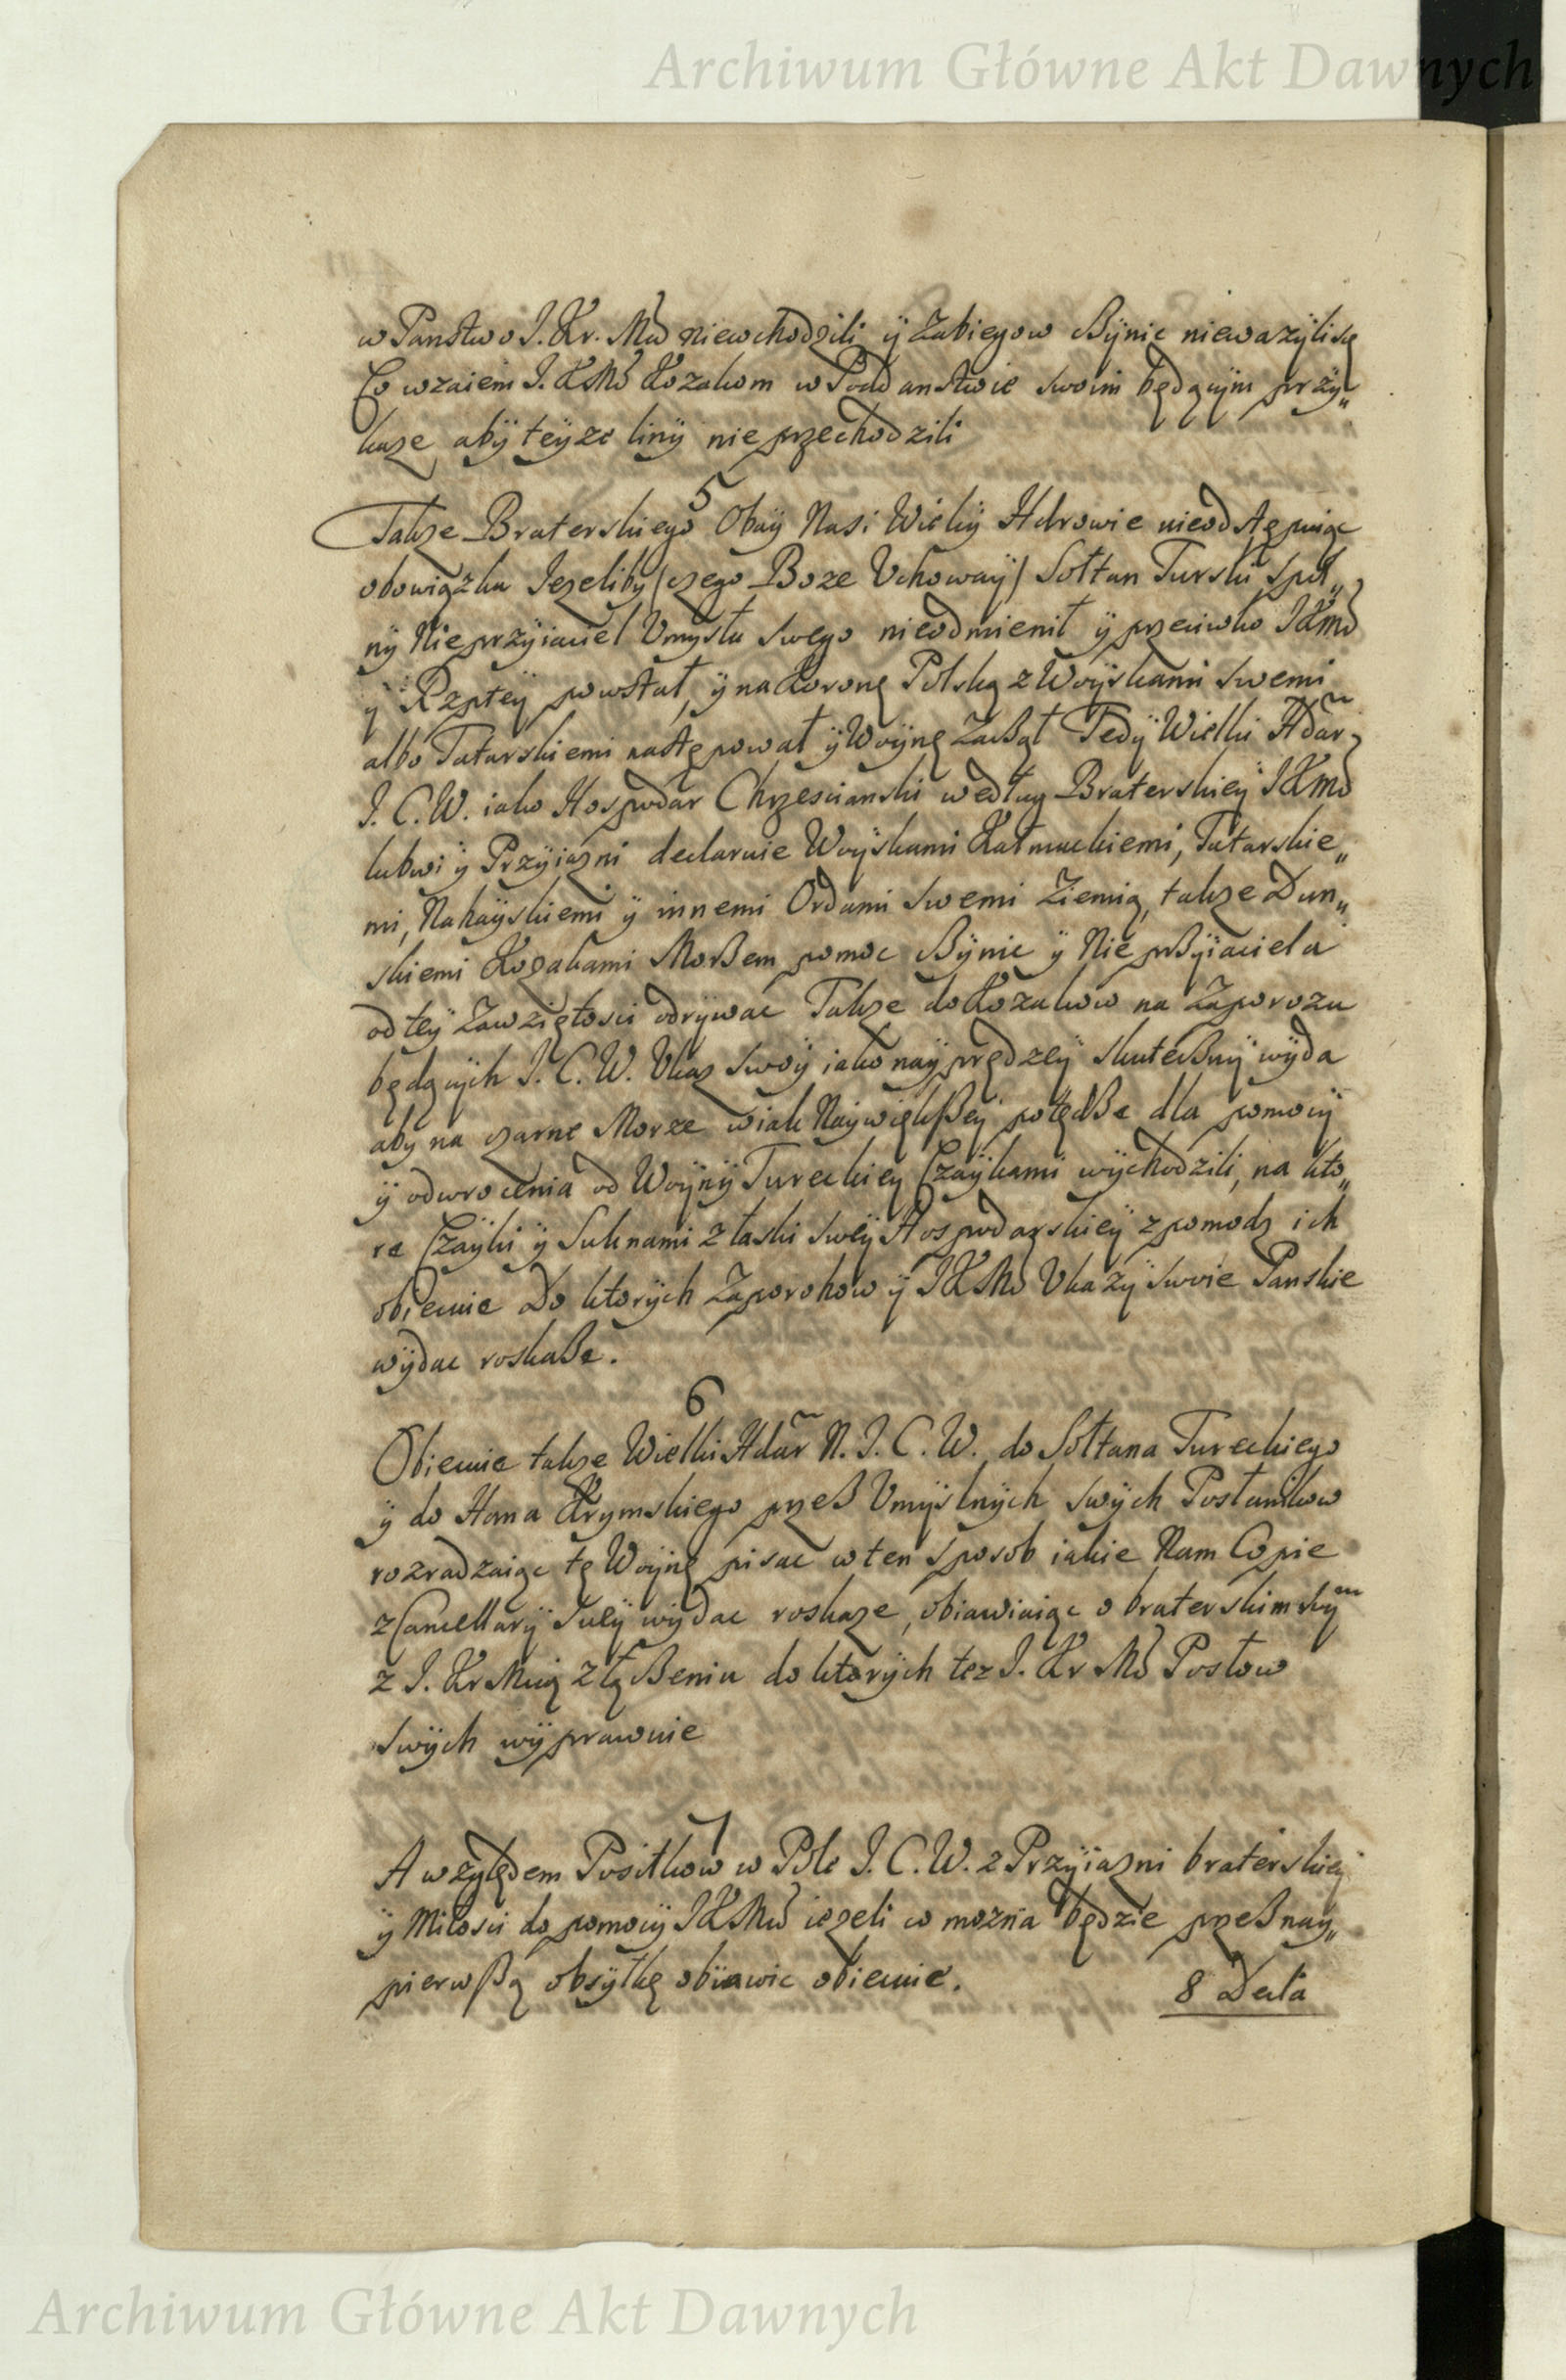 Archiwum Główne Akt Dawnych
w Panstwo J. Kr. Mci niewchodzili ÿ Zabiegow cżÿnic niewazÿli się
Co wzaiem J. K Mć Kozakom w Poddanstwie swoim będącÿm przÿ„
kaze, abÿ teÿze linÿ nie przechodzili
5
Takze Braterskiego Obaÿ Nasi Wielcÿ Hdrowie nieodstępuiąc
obowiązku Iezeliby (czego Boze Uchowaÿ) Sołtan Turski spol„
nÿ Nieprzÿiaciel Umysłu swego nieodmienił ÿ przeciwko JKMć
ÿ Rzpteÿ powstał, ÿ na Koronę Polską z Woÿskami swemi
albo Tatarskiemi następował ÿ Woÿnę Zacżął Tedÿ Wielki Hdar
J. C. W. iako Hospodar Chrzescianski według Braterskieÿ JKMć
lubwi ÿ Przÿiazni declaruie Woÿskami Kałmuckiemi, Tatarskie„
mi, Nahaÿskiemi ÿ innemi Ordami swemi Ziemią, takze Dun„
skiemi Kozakami Morżem pomoc cżÿnic ÿ Nieprżÿiaciela
od teÿ Zawziętosci odrÿwac Takze do Kozakow na Zaporozu
będącÿch J. C. W. Ukaz swoÿ iako naÿprędzeÿ skutecżnÿ wÿda
aby na czarne Morze w iak Naÿwiękßeÿ potędże dla pomocÿ
ÿ odwrocenia od Woÿnÿ Tureckieÿ Czaÿkami wÿchodzili, na kto„
re Czaÿki ÿ Suknami z łaski sweÿ Hospodarskieÿ zpomodz ich
obiecuie Do ktorÿch Zaporohow ÿ JKMć Ukazÿ swoie Panskie
wÿdac roskaże.
6
Obiecuie takze Wielki Hdar N. J. C. W. do Sołtana Tureckiego
ÿ do Hana Krymskiego przeß Umÿslnÿch swÿch Posłanikow
rozradzaiąc tę Woÿnę pisac w ten sposob iakie Nam Copie
z Cancellarÿ sweÿ wÿdac roskaze, obiawiaiąc o braterskim swÿm
z J. Kr Mcią złącżeniu do ktorÿch tez J. Kr Mć Posłow
swÿch wÿprawuie
7
A względem Posiłkow w Pole J. C. W. z Przÿiazni braterskieÿ
ÿ Miłosci do pomocÿ JKMci iezeli co mozna będzie przeß naÿ„
pierwßą obsÿłkę obiawic obiecuie.
8 Decla
Archiwum Główne Akt Dawnych